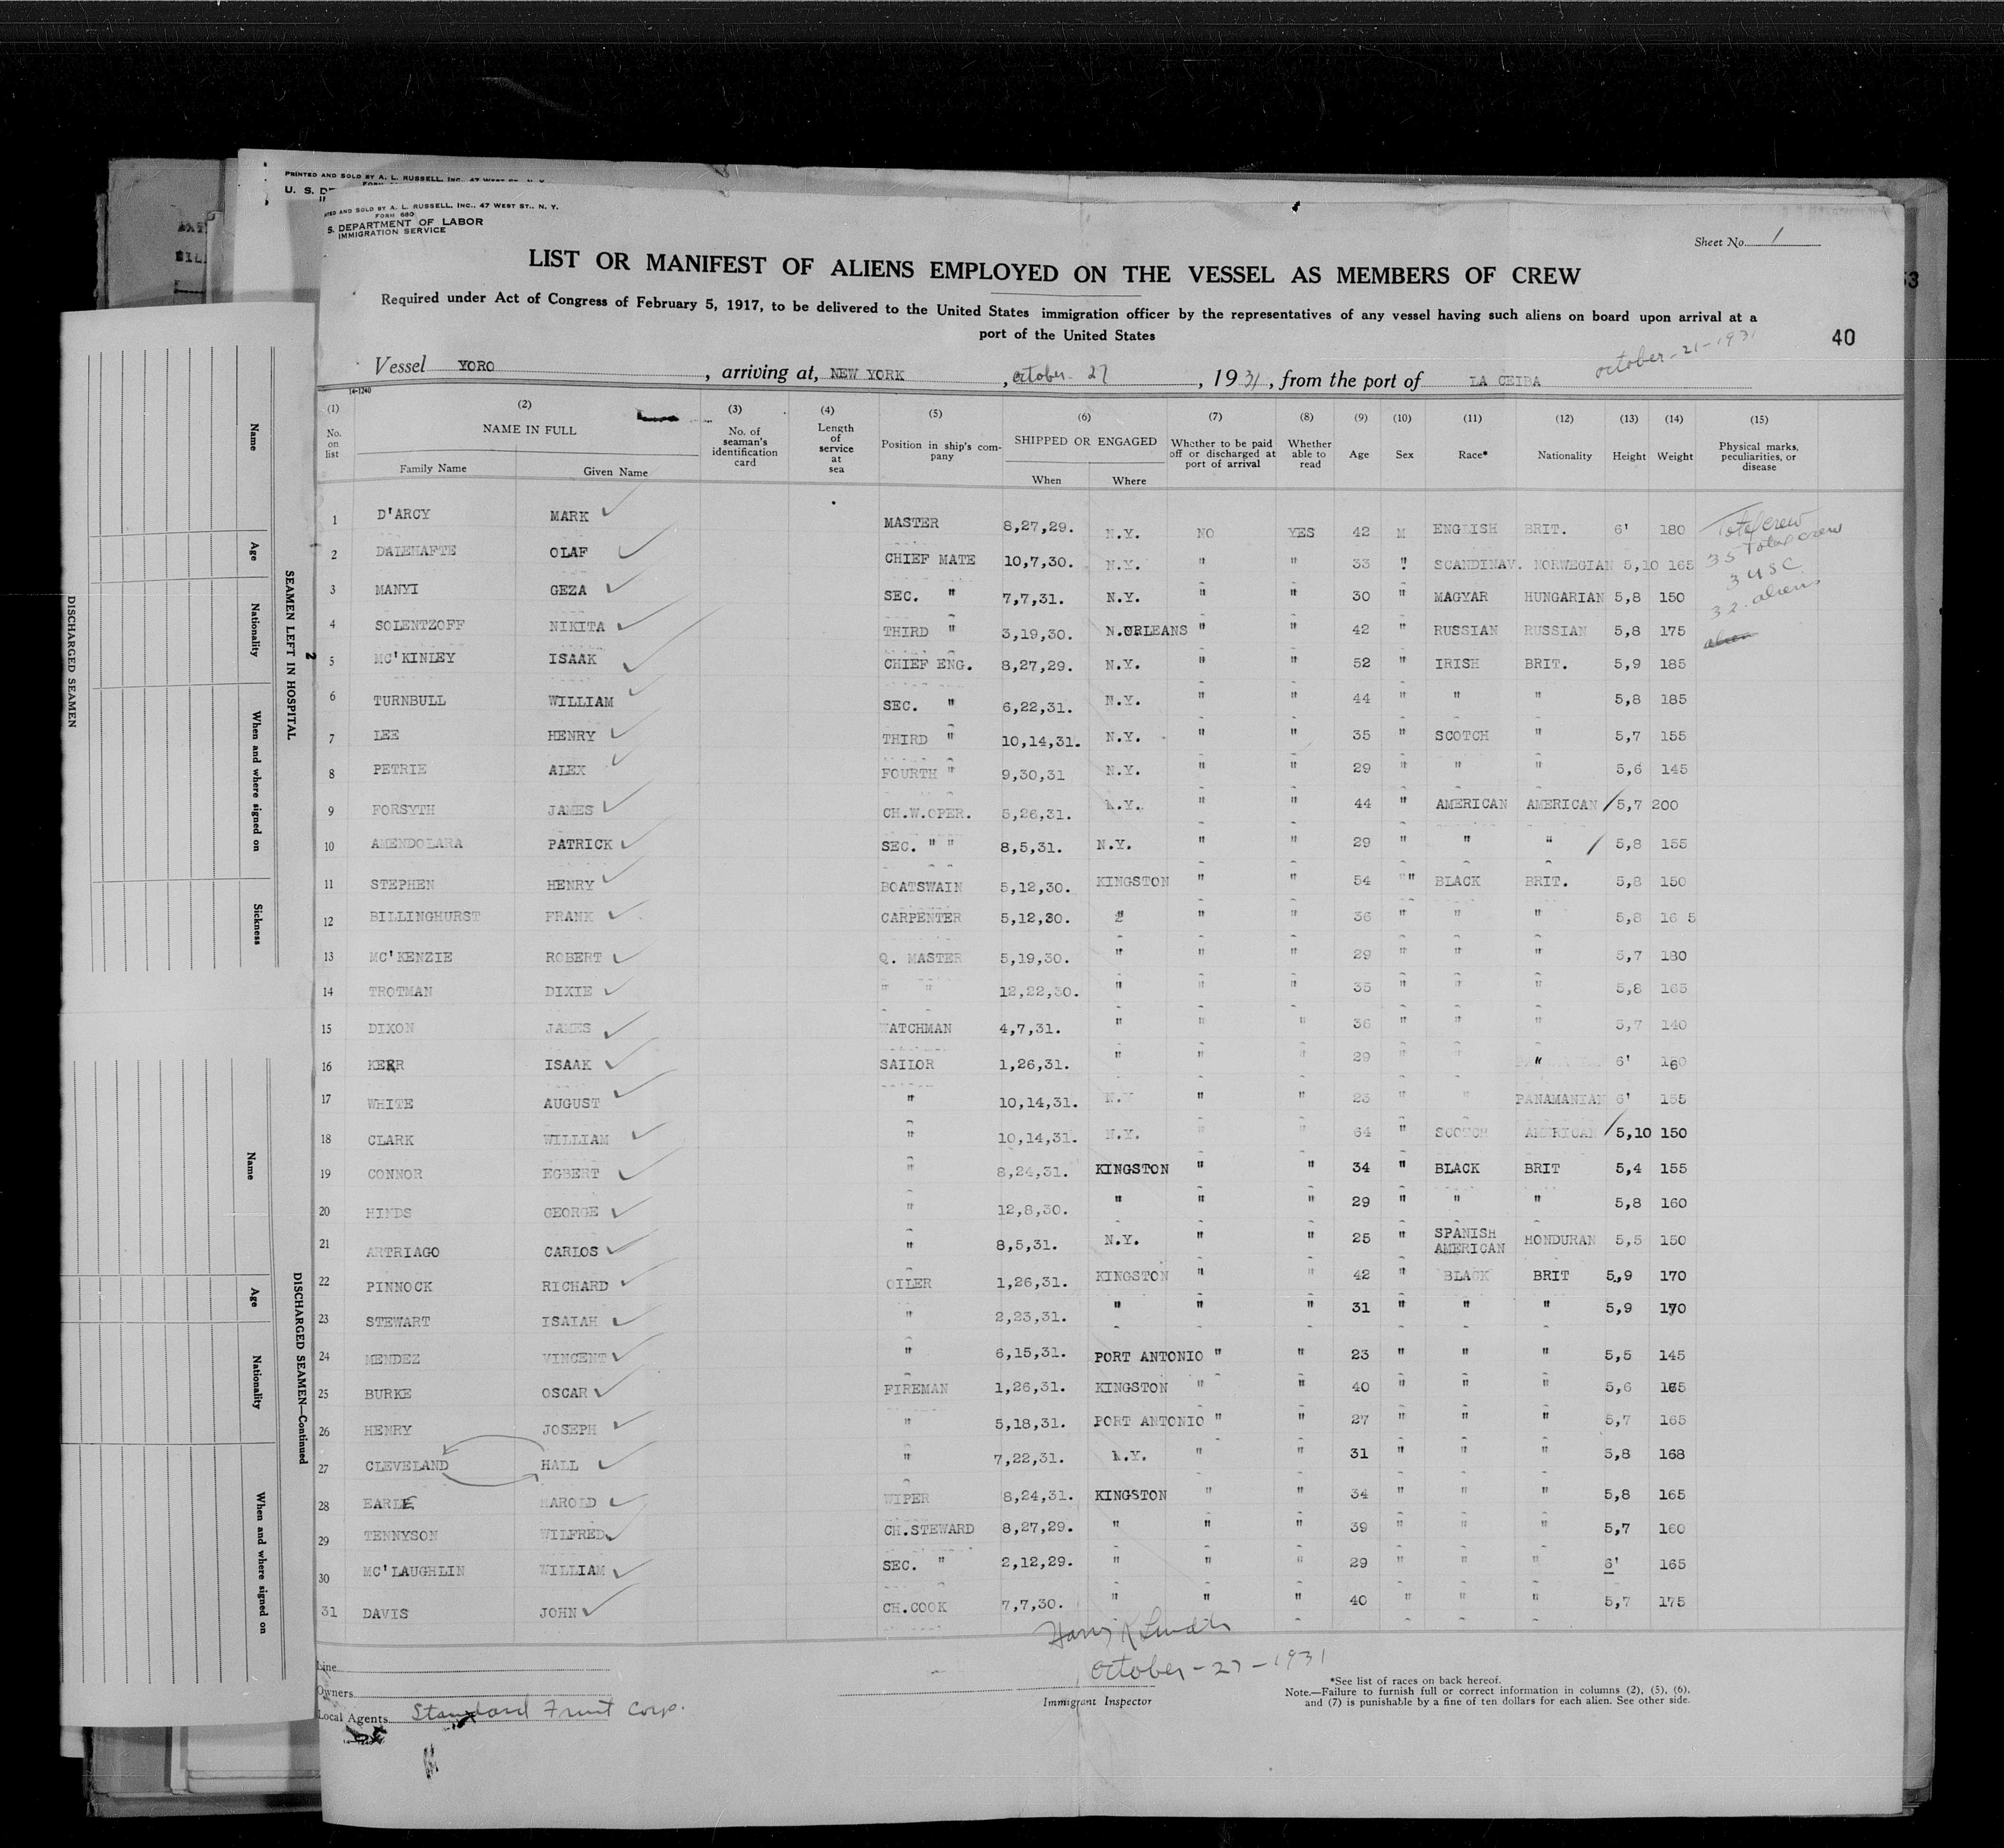 PRINTED AND SOLD BY A. L. RUSSELL, INC., 47 WEST ST., N. Y.
U. S. DE
TED AND SOLD BY A. L. RUSSELL, INC., 47 WEST ST., N. Y.
FORM 680
S. DEPARTMENT OF LABOR
IMMIGRATION SERVICE
Sheet No. 1
LIST OR MANIFEST OF ALIENS EMPLOYED ON THE VESSEL AS MEMBERS OF CREW
53
Required under Act of Congress of February 5, 1917, to be delivered to the United States immigration officer by the representatives of any vessel having such aliens on board upon arrival at a
port of the United States
40
October-21-1931
Vessel YORO, arriving at, NEW YORK, October 27, 1931, from the port of LA CEIBA
14-1240
(1) (2) (3) (4) (5) (6) (7) (8) (9) (10) (11) (12) (13) (14) (15)
No. on list
NAME IN FULL
Family Name Given Name
No. of seaman's identification card
Length of service at sea
Position in ship's company
SHIPPED OR ENGAGED
When Where
Whether to be paid off or discharged at port of arrival
Whether able to read
Age
Sex
Race*
Nationality
Height
Weight
Physical marks, peculiarities, or disease
1 D'ARCY MARK MASTER 8,27,29. N.Y. NO YES 42 M ENGLISH BRIT. 6' 180
2 DALEHAFTE OLAF CHIEF MATE 10,7,30. N.Y. " " 33 " SCANDINAV. NORWEGIAN 5,10 165
3 MANYI GEZA SEC. " 7,7,31. N.Y. " " 30 " MAGYAR HUNGARIAN 5,8 150
4 SOLENTZOFF NIKITA THIRD " 3,19,30. N.ORLEANS " " 42 " RUSSIAN RUSSIAN 5,8 175
5 MC'KINLEY ISAAK CHIEF ENG. 8,27,29. N.Y. " " 52 " IRISH BRIT. 5,9 185
6 TURNBULL WILLIAM SEC. " 6,22,31. N.Y. " " 44 " " " 5,8 185
7 LEE HENRY THIRD " 10,14,31. N.Y. " " 35 " SCOTCH " 5,7 155
8 PETRIE ALEX FOURTH " 9,30,31 N.Y. " " 29 " " " 5,6 145
9 FORSYTH JAMES CH.W.OPER. 5,26,31. N.Y. " " 44 " AMERICAN AMERICAN 5,7 200
10 AMENDOLARA PATRICK SEC. " " 8,5,31. N.Y. " " 29 " " " 5,8 155
11 STEPHEN HENRY BOATSWAIN 5,12,30. KINGSTON " " 54 "" BLACK BRIT. 5,8 150
12 BILLINGHURST FRANK CARPENTER 5,12,30. " " " 36 " " " 5,8 16 5
13 MC'KENZIE ROBERT Q. MASTER 5,19,30. " " " 29 " " " 5,7 180
14 TROTMAN DIXIE " " 12,22,30. " " " 35 " " " 5,8 165
15 DIXON JAMES WATCHMAN 4,7,31. " " " 36 " " " 5,7 140
16 KERR ISAAK SAILOR 1,26,31. " " " 29 " " " 6' 160
17 WHITE AUGUST " 10,14,31. N.Y " " 23 " " PANAMANIAN 6' 155
18 CLARK WILLIAM " 10,14,31. N.Y. " " 64 " SCOTCH AMERICAN 5,10 150
19 CONNOR EGBERT " 8,24,31. KINGSTON " " 34 " BLACK BRIT 5,4 155
20 HINDS GEORGE " 12,8,30. " " " 29 " " " 5,8 160
21 ARTRIAGO CARLOS " 8,5,31. N.Y. " " 25 " SPANISH AMERICAN HONDURAN 5,5 150
22 PINNOCK RICHARD OILER 1,26,31. KINGSTON " " 42 " BLACK BRIT 5,9 170
23 STEWART ISAIAH " 2,23,31. " " " 31 " " " 5,9 170
24 MENDEZ VINCENT " 6,15,31. PORT ANTONIO " " 23 " " " 5,5 145
25 BURKE OSCAR FIREMAN 1,26,31. KINGSTON " " 40 " " " 5,6
26 HENRY JOSEPH " 5,18,31. PORT ANTONIO " " 27 " " " 5,7 165
27 CLEVELAND HALL " 7,22,31. N.Y. " " 31 " " " 5,8 168
28 EARLE HAROLD WIPER 8,24,31. KINGSTON " " 34 " " " 5,8 165
29 TENNYSON WILFRED CH.STEWARD 8,27,29. " " " 39 " " " 5,7 160
30 MC'LAUGHLIN WILLIAM SEC. " 2,12,29. " " " 29 " " " 6' 165
31 DAVIS JOHN CH.COOK 7,7,30. " " " 40 " " " 5,7 175
Total crew
35 Total crew
3 USC
32 aliens
October-27-1931
Immigrant Inspector
Line
Owners
Local Agents Standard Fruit Corp.
*See list of races on back hereof.
Note.—Failure to furnish full or correct information in columns (2), (5), (6),
and (7) is punishable by a fine of ten dollars for each alien. See other side.
SEAMEN LEFT IN HOSPITAL
Name
Age
Nationality
When and where signed on
Sickness
DISCHARGED SEAMEN
2
DISCHARGED SEAMEN—Continued
Name
Age
Nationality
When and where signed on